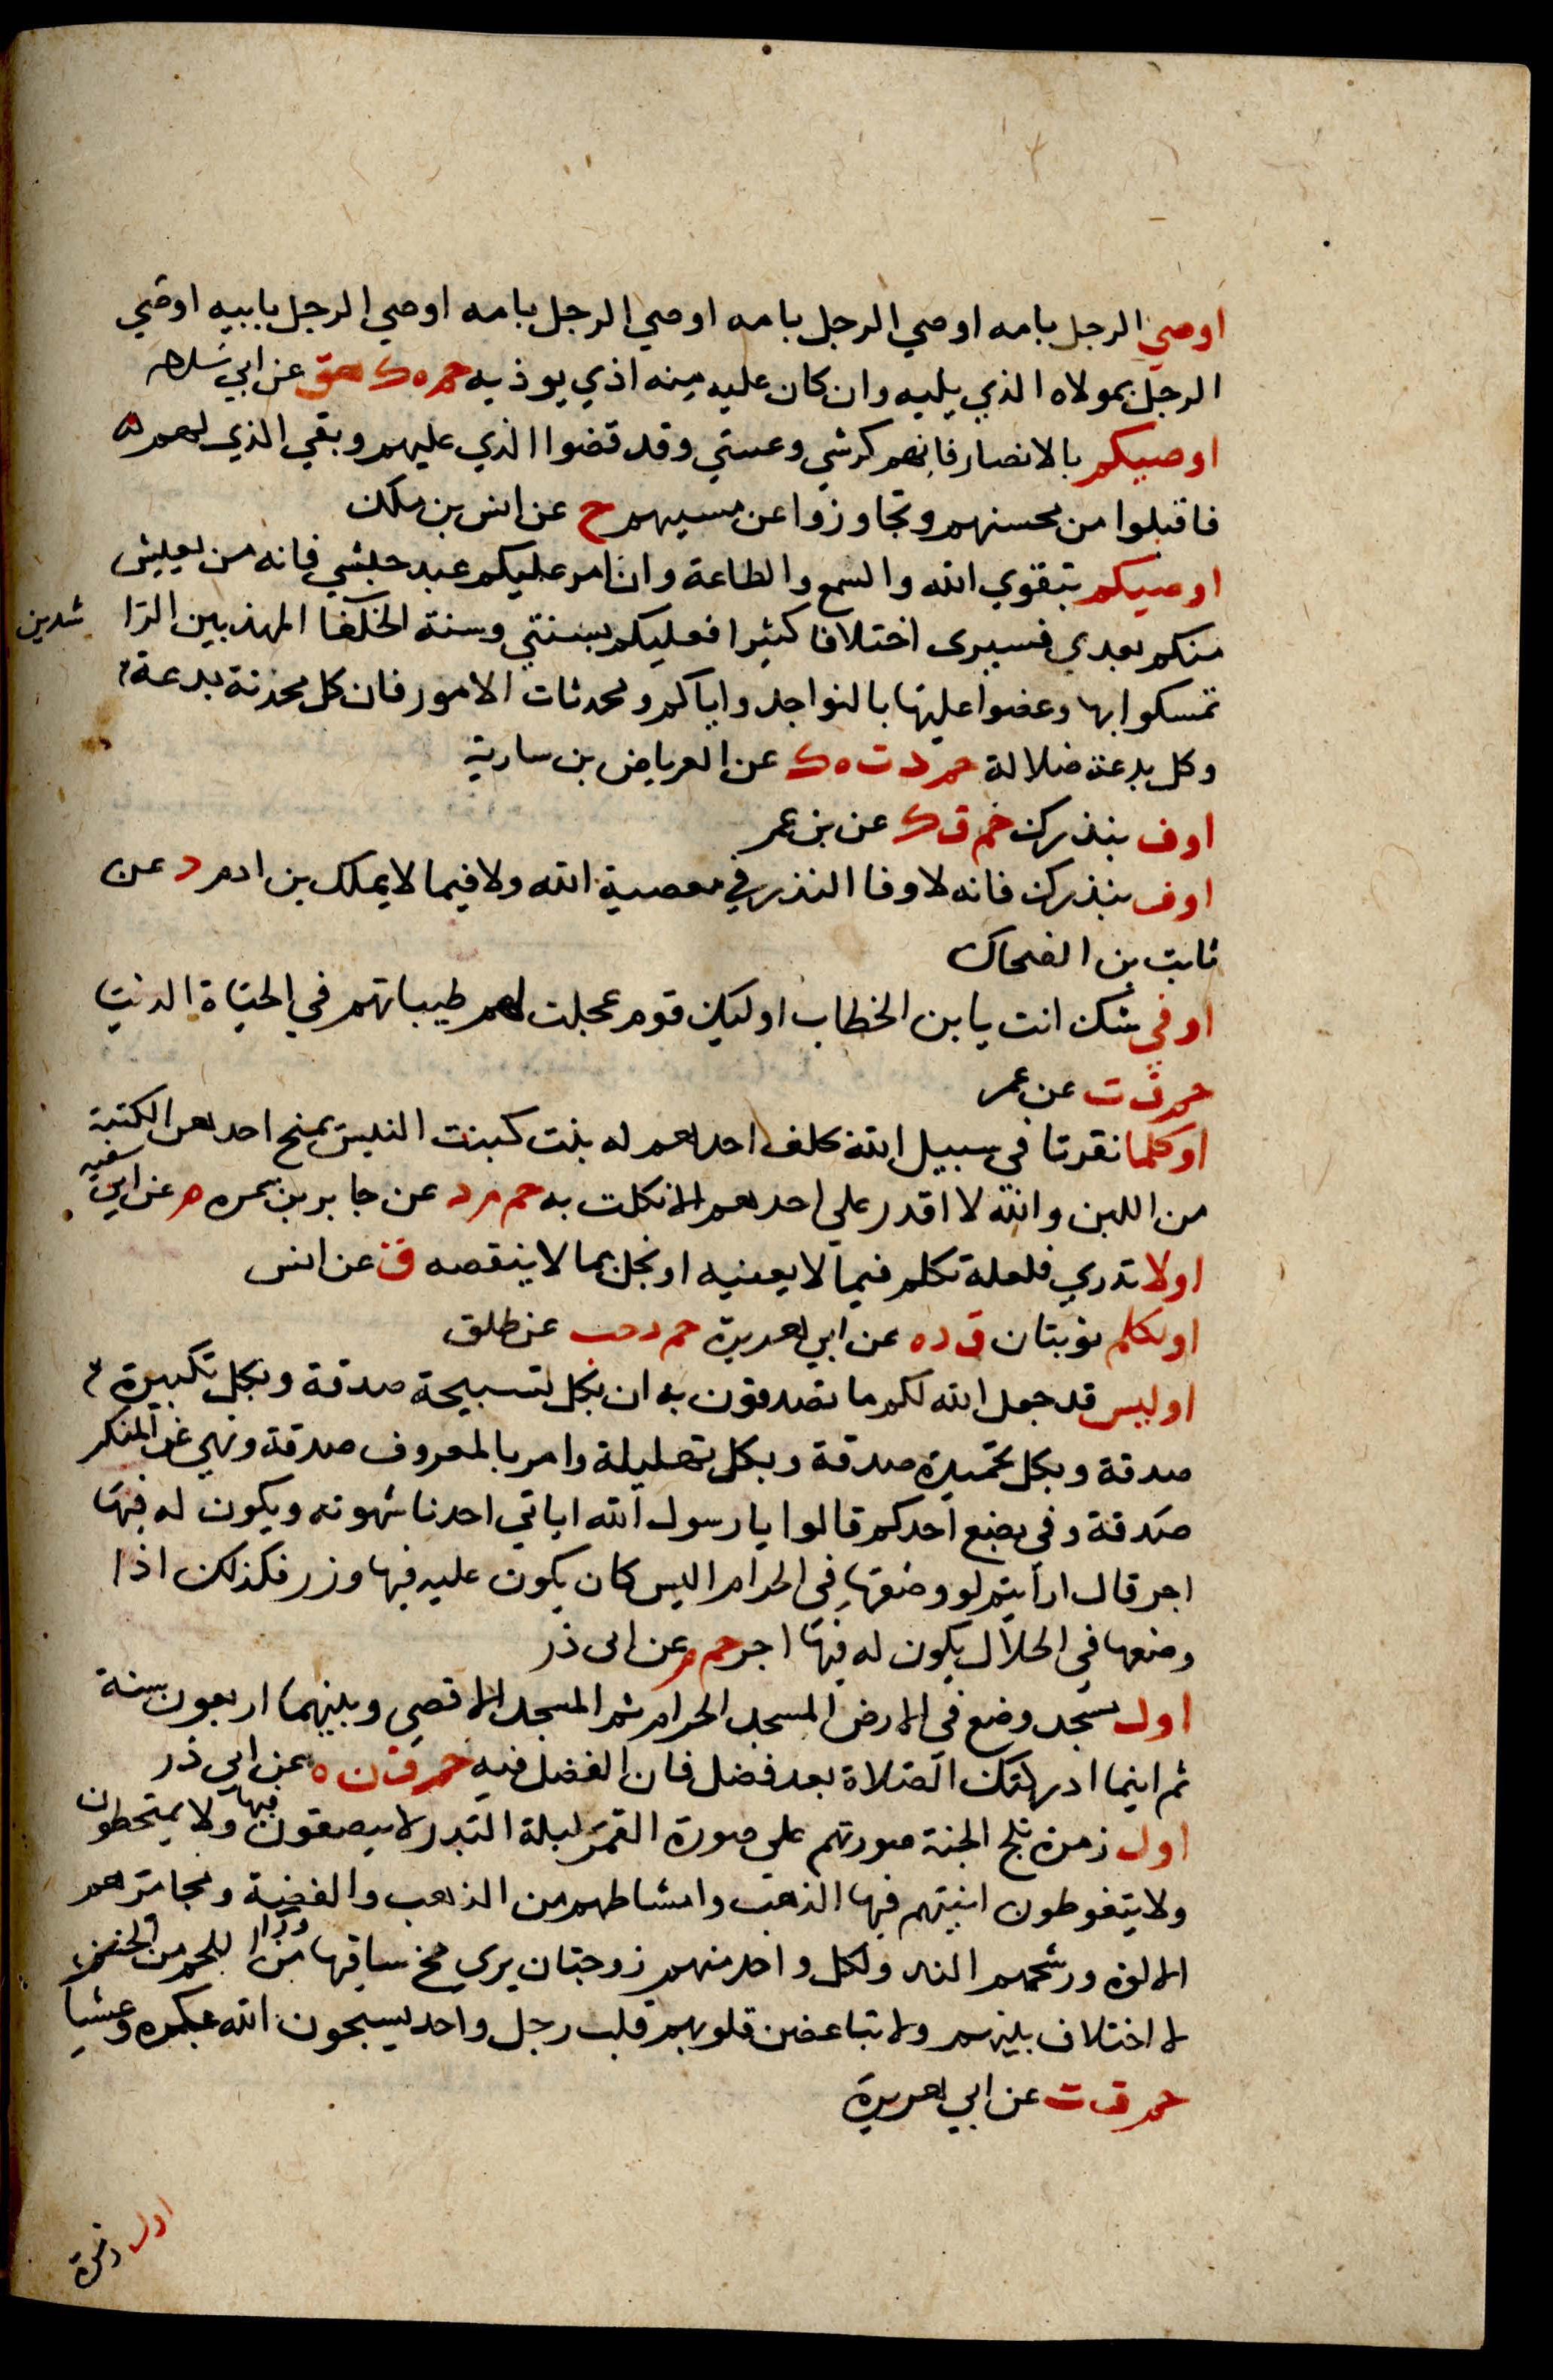 اوصي الرجل بامه اوصي الرجل بامه اوصي الرجل بامه اوصي الرجل بابيه اوصي
الرجل بمولاه الذي يليه وان كان عليه منه اذي يوذيه حم ه ك هق عن ابي سلامه
اوصيكم بالانصار فانهم كرشي وعيبتي وقد قضوا الذي عليهم وبقي الذي لهم
فاقبلوا من محسنهم وتجاوزوا عن مسيهم خ عن انس بن ملك
اوصيكم بتقوي الله والسمع والطاعة وان امر عليكم عبد حبشي فانه من يعيش
منكم بعدي فسيرى اختلافا كثيرا فعليكم بسنتي وسنة الخلفا المهذبين الرا شدين
تمسكوا بها وعضوا عليها بالنواجد واياكم ومحدثات الامور فان كل محدثة بدعة
وكل بدعة ضلالة حم د ت ه ك عن العرباض بن سارية
اوف بنذرك حم ق ك عن بن عمر
اوف بنذرك فانه لا وفا النذر في معصية الله ولا فيما لا يملك بن ادم د عن
ثابت بن الضحاك
اوفي شك انت يا بن الخطاب اوليك قوم عجلت لهم طيباتهم في الحياة الدنيا
حم ق ت عن عمر
اوكلما نفرنا في سبيل الله خلف احدهم له بنت كبنت التيس يمنح احدهن الكتبة
من اللبن والله لا اقدر علي احدهم الا نكلت به حم م د عن جابر بن سمره م عن ابي سعيد
اولا تدري فلعله تكلم فيما لا يعنيه او بخل بما لا ينقصه ت عن انس
اولكلكم ثوبتان ق د ه عن ابي هريرة حم د حب عن طلق
اوليس قد جعل الله لكم ما تصدقون به ان بكل تسبيحة صدقة وبكل تكبيرة
صدقة وبكل تحميدة صدقة وبكل تهليلة وامر بالمعروف صدقة ونهي عن المنكر
صدقة وفي بضع احدكم قالوا يا رسول الله اياتي احدنا شهوته ويكون له فيها
اجر قال ارأيتم لو وضعها في الحرام اليس كان يكون عليه فيها وزر فكذلك اذا
وضعها في الحلال يكون له فيها اجر حم م عن ابى ذر
اول مسجد وضع في الارض المسجد الحرام ثم المسجد الاقصي وبينهما اربعون سنة
ثم اينما ادركتك الصلاة بعد فصل فان الفضل فيه حم ق ن ه عن ابي ذر
اول زمرة تلج الجنة صورتهم علي صورة القمر ليلة البدر لا يبصقون فيها ولا يمتخطون
ولا يتغوطون انيتهم فيها الذهب وامشاطهم من الذهب والفضة ومجامرهم
الالوة ورشحهم المسك ولكل واحد منهم زوجتان يري مخ ساقها من ورا اللحم من الحسن
لا اختلاف بينهم ولا تباغض قلوبهم قلب رجل واحد يسبحون الله بكرة وعشيا
حم ق ت عن ابي هريرة
اول زمرة